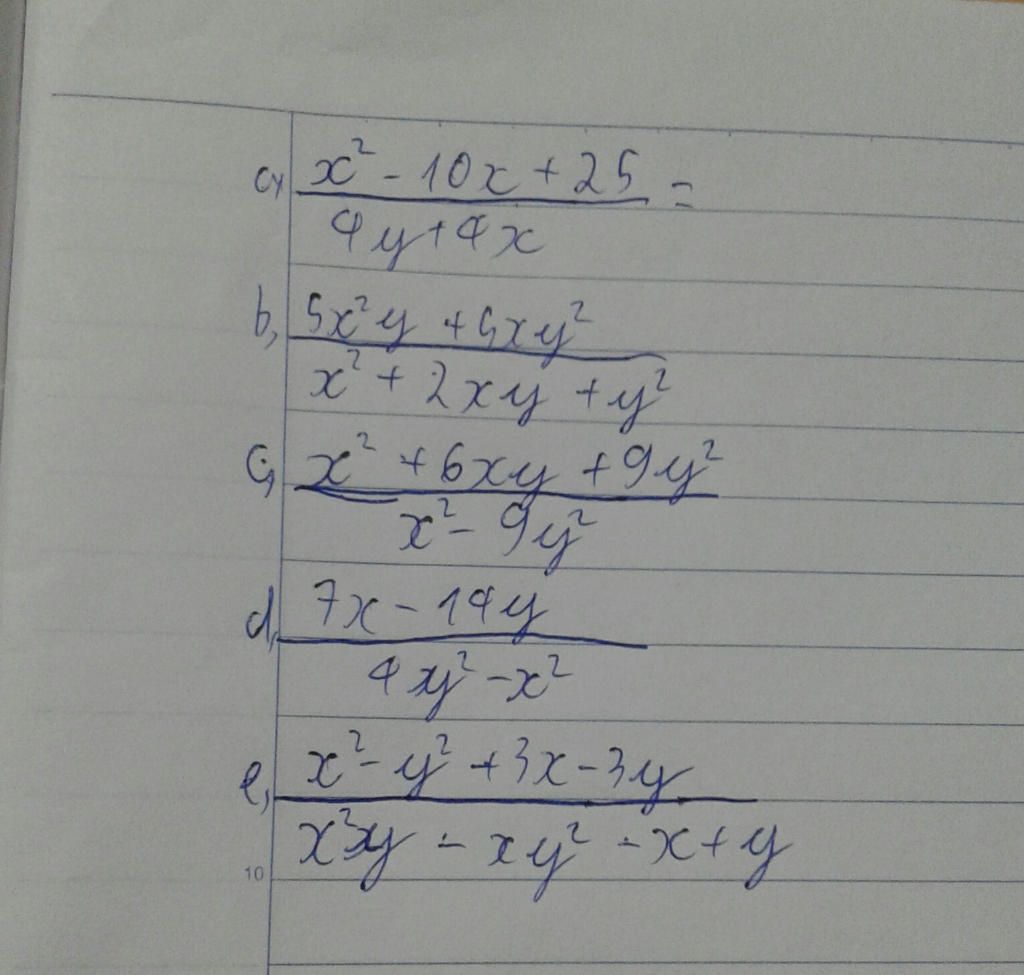 a, x² - 10x + 25 =
4y + 4x
b, 5x²y + 5xy²
x² + 2xy + y²
c, x² + 6xy + 9y²
x² - 9y²
d, 7x - 14y
4y² - x²
e, x² - y² + 3x - 3y
x²y - xy² - x + y
10